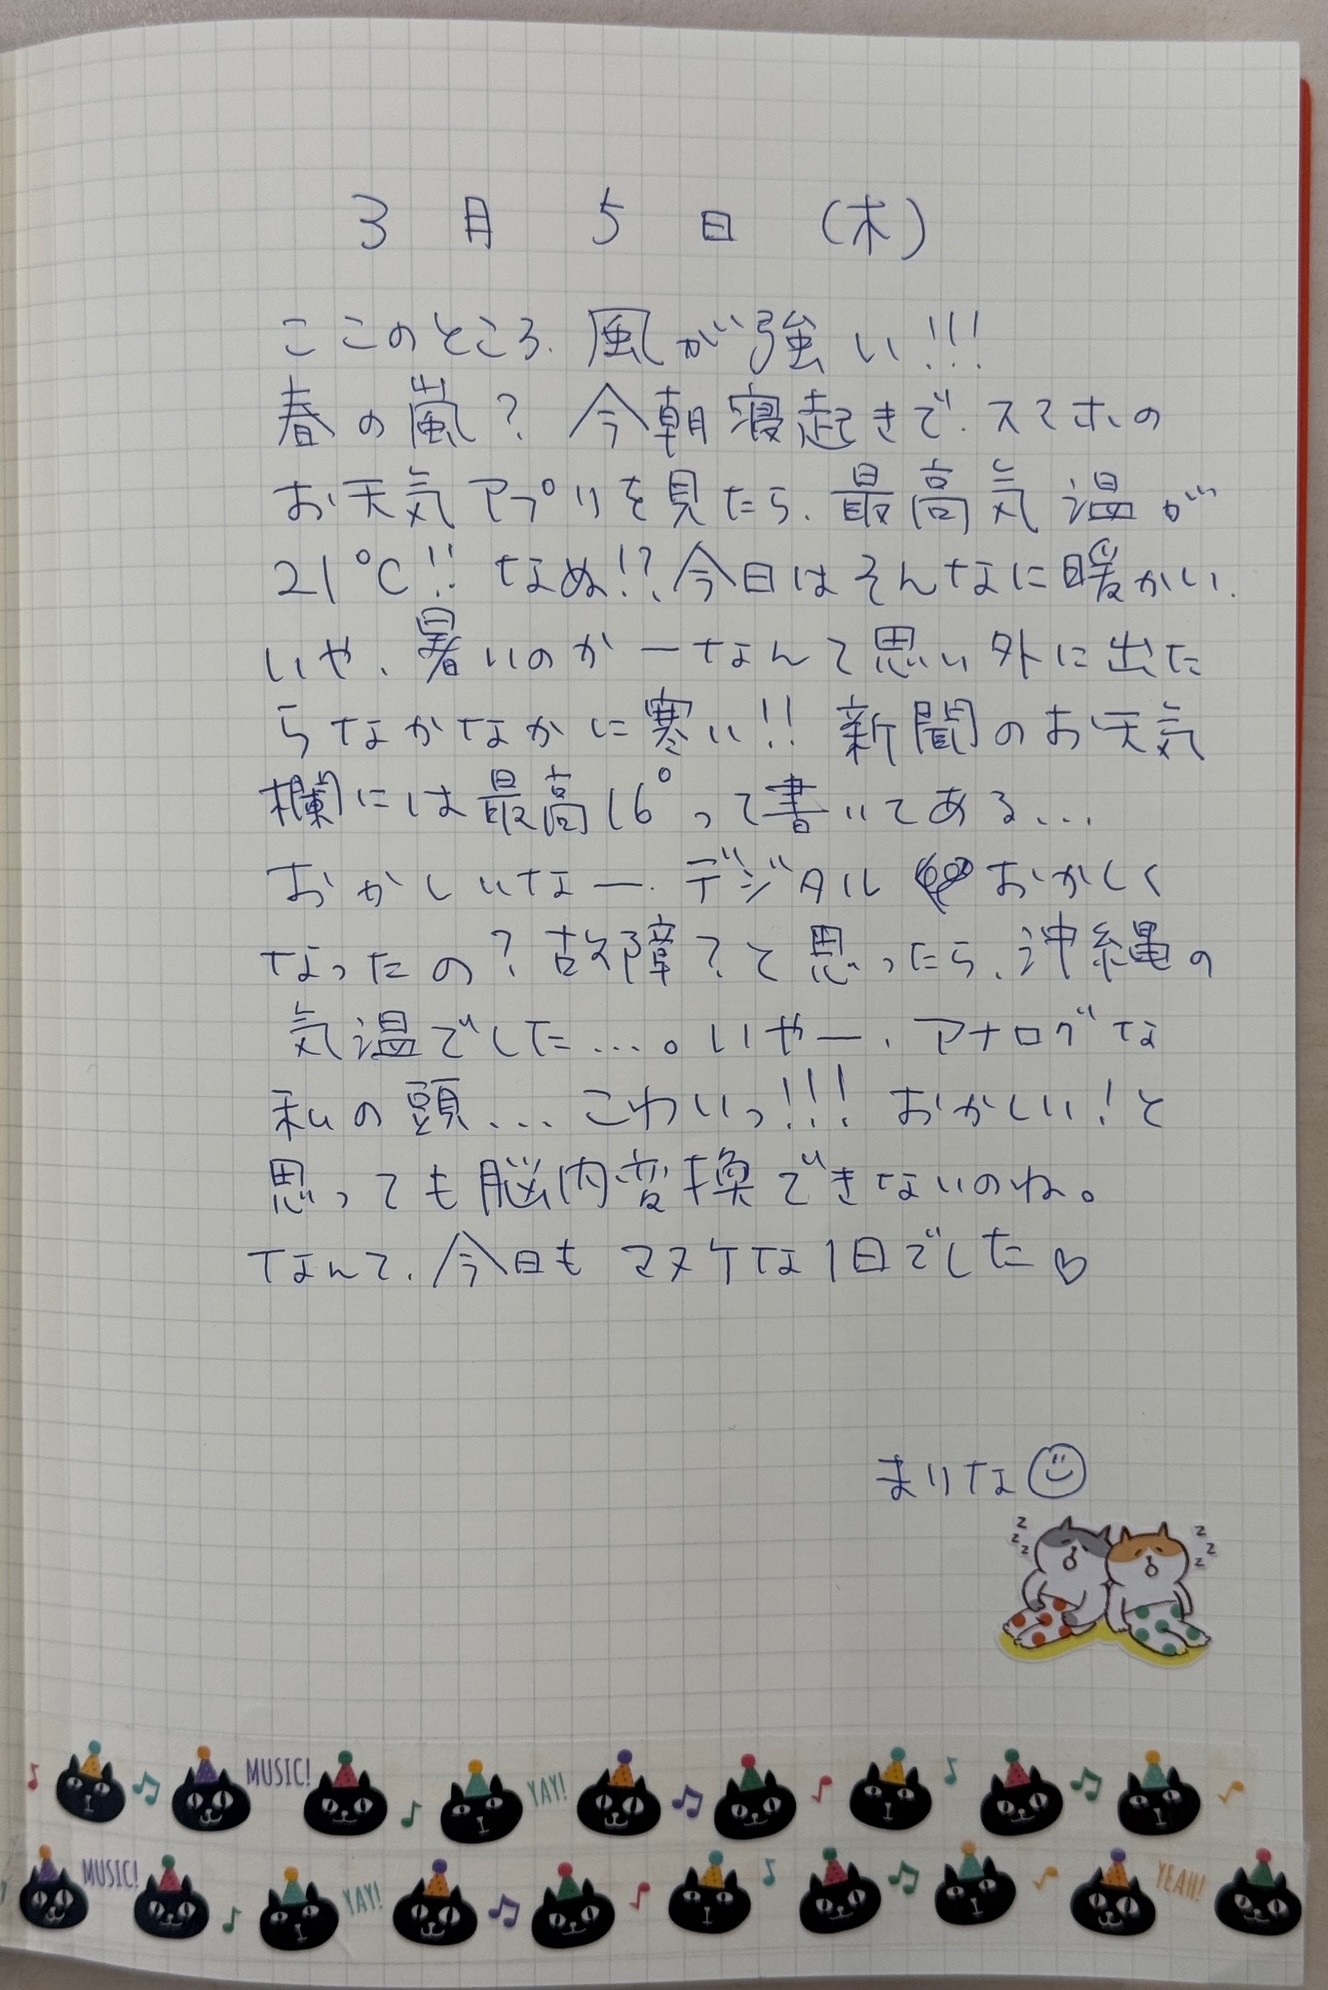 3月5日(木)
ここのところ、風が強い!!!
春の嵐?今朝寝起きで、スマホの
お天気アプリを見たら、最高気温が
21℃!!なぬ!?今日はそんなに暖かい、
いや、暑いのかーなんて思い外に出た
らなかなかに寒い!!新聞のお天気
欄には最高16°って書いてある...
おかしいなー、デジタルおかしく
なったの?故障?と思ったら、沖縄の
気温でした...。いやー、アナログな
私の頭...こわいっ!!!おかしい!と
思っても脳内変換できないのね。
なんて、今日もマヌケな1日でした♡
まりな☺
z z z z z z
MUSIC! YAY!
MUSIC! YAY! YEAH!